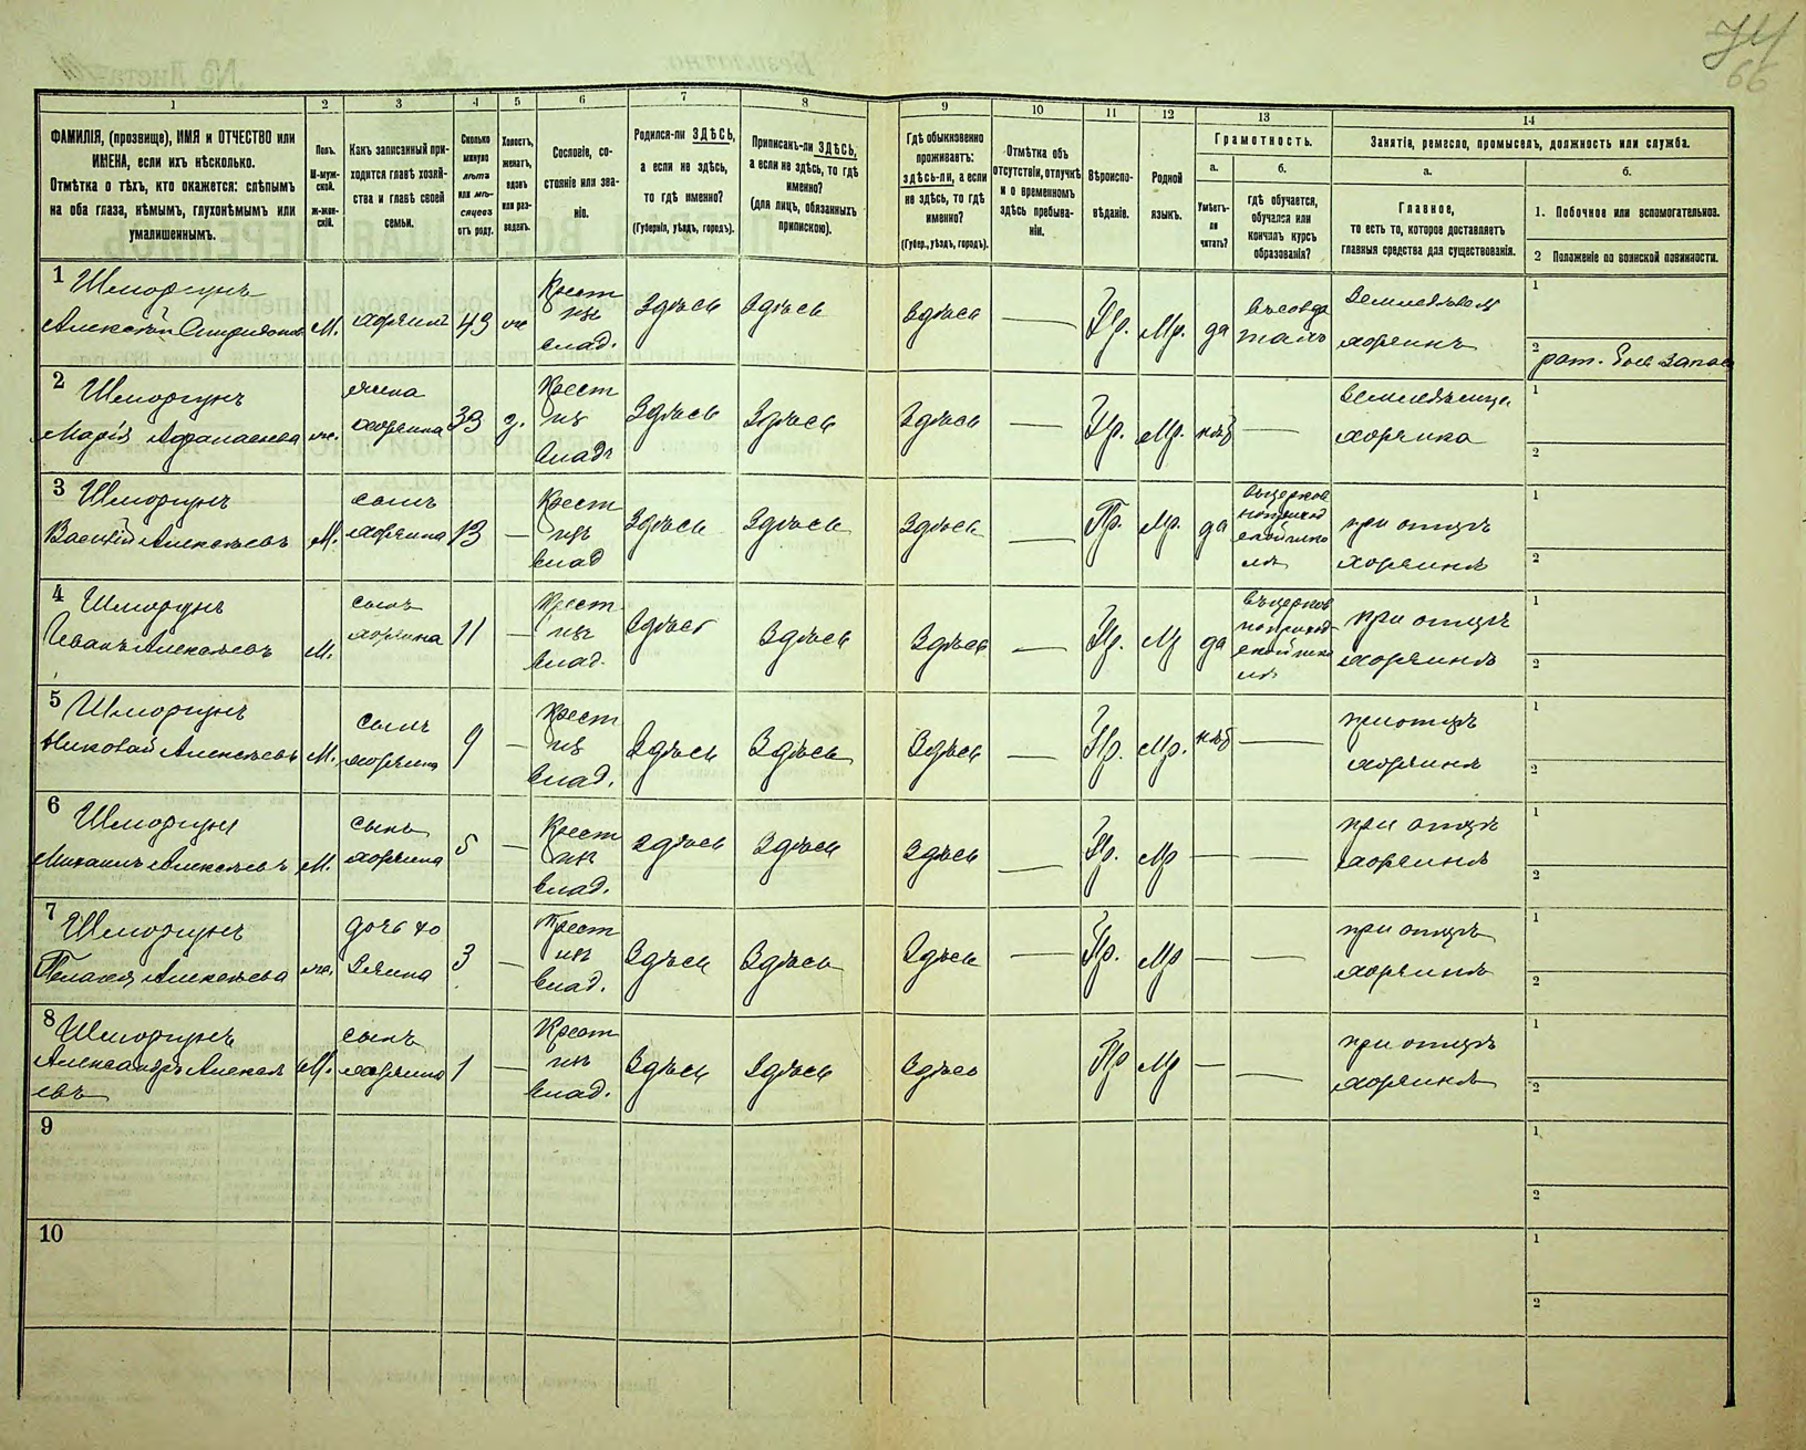 74
66
1 2 3 4 5 6 7 8 9 10 11 12 13 14
ФАМИЛІЯ, (прозвище), ИМЯ и ОТЧЕСТВО или
ИМЕНА, если ихъ нѣсколько.
Отмѣтка о тѣхъ, кто окажется: слѣпымъ
на оба глаза, нѣмымъ, глухонѣмымъ или
умалишеннымъ.
Полъ.
М-муж-
ской.
Ж-жен-
скій.
Какъ записанный при-
ходится главѣ хозяй-
ства и главѣ своей
семьи.
Сколько
минуло
лѣтъ
или мѣ-
сяцевъ
отъ роду.
Холостъ,
женатъ,
вдовъ
или раз-
веденъ.
Сословіе, со-
стояніе или зва-
ніе.
Родился-ли ЗДѢСЬ,
а если не здѣсь,
то гдѣ именно?
(Губернія, уѣздъ, городъ).
Приписанъ-ли ЗДѢСЬ,
а если не здѣсь, то гдѣ
именно?
(для лицъ, обязанныхъ
припискою).
Гдѣ обыкновенно
проживаетъ:
здѣсь-ли, а если
не здѣсь, то гдѣ
именно?
(Губер., уѣздъ, городъ).
Отмѣтка объ
отсутствіи, отлучкѣ
и о временномъ
здѣсь пребыва-
ніи.
Вѣроиспо-
вѣданіе.
Родной
языкъ.
Грамотность.
а.
Умѣетъ-
ли
читать?
б.
гдѣ обучается,
обучался или
кончилъ курсъ
образованія?
Занятіе, ремесло, промыселъ, должность или служба.
а.
Главное,
то есть то, которое доставляетъ
главныя средства для существованія.
б.
1. Побочное или вспомогательное.
2 Положеніе по воинской повинности.
1 Шморгунъ
Алексѣй Спиридонов М. хозяинъ 43 же Крест изъ влад. Здѣсь Здѣсь Здѣсь — Пр. Мр. да
хозяинъ
1
2
2 Шморгунъ
Марія Афанасьева же. жена хозяина 33 з. Крест изъ Влад Здѣсь Здѣсь Здѣсь — Пр. Мр. нѣт —
хозяйка
1
2
3 Шморгунъ
Василій Алексѣевъ М. сынъ хозяина 13 — Крест изъ влад Здѣсь Здѣсь Здѣсь — Пр. Мр. да
при отцѣ
хозяинѣ
1
2
4 Шморгунъ
Иванъ Алексѣевъ М. сынъ хозяина 11 — Крест изъ влад. Здѣсь Здѣсь Здѣсь — Пр. Мр да
при отцѣ
хозяинѣ
1
2
5 Шморгунъ
Николай Алексѣевъ М. сынъ хозяина 9 — Крест изъ влад. Здѣсь Здѣсь Здѣсь — Пр. Мр. нѣт —
при отцѣ
хозяинѣ
1
2
6 Шморгунъ
Михаилъ Алексѣевъ М. сынъ хозяина 5 — Крест изъ влад. Здѣсь Здѣсь Здѣсь — Пр. Мр — —
при отцѣ
хозяинѣ
1
2
7 Шморгунъ
Пелагея Алексѣева же. дочь хо зяина 3 — Крест изъ влад. Здѣсь Здѣсь Здѣсь — Пр. Мр — —
при отцѣ
хозяинѣ
1
2
8 Шморгунъ
Александръ Алексѣ
евъ М. сынъ хозяина 1 — Крест изъ влад. Здѣсь Здѣсь Здѣсь Пр Мр — —
при отцѣ
хозяинѣ
1
2
9
1
2
10
1
2